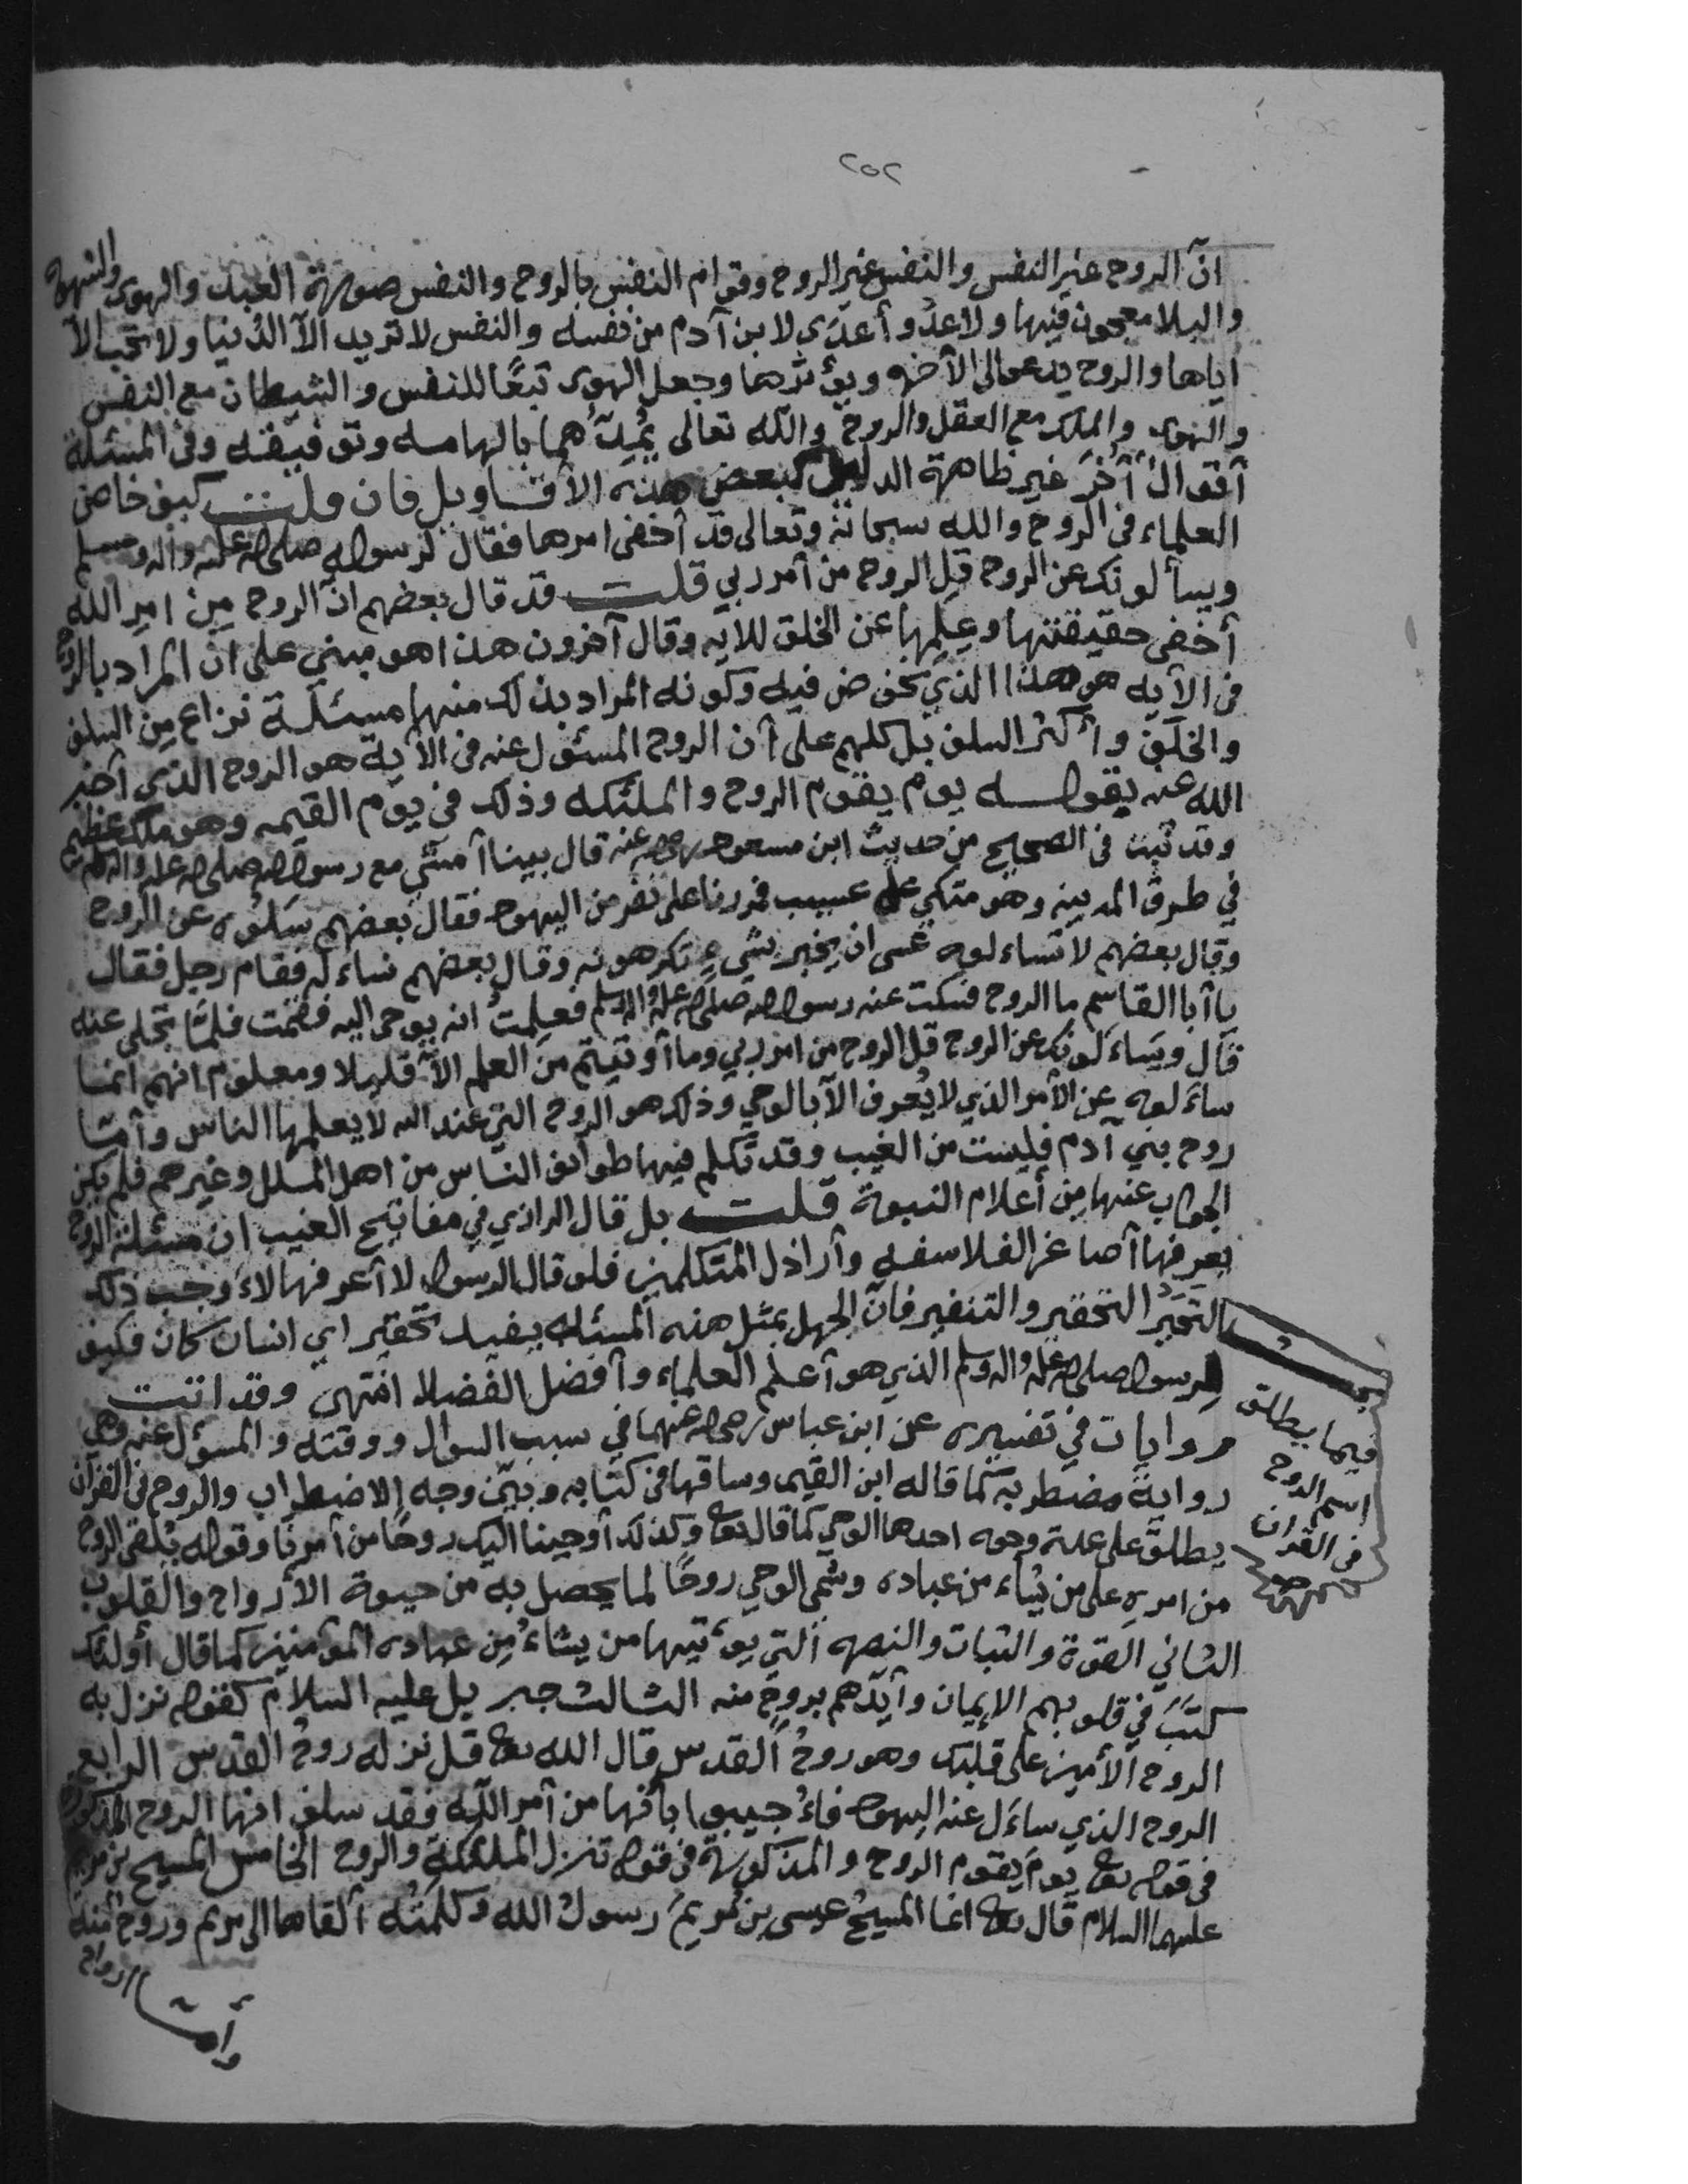 ٢٥٢
انّ الروح غير النفس والنفس غير الروح وقوام النفس بالروح والنفس صورة العبد والهوى والشهوة
والبلا معجون فيها ولا عدوّ أعدَى لابن آدم من نفسه والنفس لا تريد الّا الدُنيا ولا تحب الّا
اياها والروح يدعو الى الآخره ويؤثرها وجعل الهوى تبعًا للنفس والشيطان مع النفس
والهوى والملك مع العقل والروح والله تعالى يُمِدّهما بالهامه وتوفيقه وفي المسئلة
أقوال أُخَر غير ظاهرة الدليل كبعض هذه الأقاويل فان قلت كيف خاض
العلماء في الروح والله سبحانه وتعالى قد أخفى امرها فقال لرسوله صلى الله عليه واله وسلم
ويسألونك عن الروح قل الروح من أمر ربي قلت قد قال بعضهم انّ الروح مِن امرِ الله
أخفى حقيقتها وعِلمِها عن الخلق للايه وقال آخرون هذا هو مبني على انّ المراد بالروح
في الآيه هو هذا الذي نخوض فيه وكونه المراد بذلك منها مسئلة نزاع مِن السلف
والخلَف وأكثر السلف بل كلهم على أن الروح المسئول عنه في الآية هو الروح الذي أخبر
الله عنه بقوله يوم يقوم الروح والملئكه وذلك في يوم القيمه وهو ملك عظيم
وقد ثبت في الصحيح من حديث ابن مسعود رضي الله عنه قال بينا أمشي مع رسول الله صلى الله عليه واله وسلم
في طرق المدينه وهو متكي على عسيب فمررنا على نفر من اليهود فقال بعضهم سَلُوه عن الروح
وقال بعضهم لا تساءلوه عسى ان يخبر بشيءٍ تكرهونه وقال بعضهم نساءله فقام رجل فقال
يا أبا القاسم ما الروح فسكت عنه رسول الله صلى الله عليه واله وسلم فعلِمتُ انه يوحى اليه فقمت فلمّا تجلى عنه
قال ويَساءَلونك عن الروح قل الروح من امر ربي وما أوتيتم من العلم الّا قليلا ومعلوم انهم انما
ساءَلوه عن الأمر الذي لا يُعرف الّا بالوحي وذلك هو الروح التي عند الله لا يعلمها الناس وأمّا
روح بني آدم فليست من الغيب وقد تكلم فيها طوائف الناس من اهل الملل وغيرهم فلم يكن
الجواب عنها مِن أعلام النبوة قلت بل قال الرازي في مفاتيح الغيب ان مسئلة الروح
يعرفها أصاغر الفلاسفه وأراذل المتكلمين فلو قال الرسول لا أعرفها لاءَوجب ذلك
التحقير والتنفير فانّ الجهل بمثل هذه المسئله يفيد تحقير اي انسان كان فكيف
لِرسول صلى الله عليه واله وسلم الذي هو أعلَم العلماء وأفضل الفضلاء انتهى وقد اتت
روايات في تفسيره عن ابن عباس رضي الله عنهما في سبب السوال ووقته والمسؤل عنه وهي
روايةٌ مضطربة كما قاله ابن القيم وساقها في كتابه وبيّن وجه الاضطراب والروح في القرآن
يطلق على عدة وجوه احدها الوحي كما قال تعالى وكذلك أوحينا اليك روحًا من أمرنا وقوله يُلقي الروح
من امرِهِ على من يشاء من عباده وسمّي الوحي روحًا لما يحصل به من حيوة الأرواح والقلوب
الثاني القوة والثبات والنصره التي يوءتيها من يشاءُ مِن عباده المؤمنين كما قال أولئك
كتَبَ في قلوبهم الإيمان وأيّدهم بروحٍ منه الثالث جبريل عليه السلام كقوله نزل به
الروح الأمين على قلبك وهو روحُ القدس قال الله تعالى قل نزله روحُ القدس الرابع
الروح الذي ساءَل عنه اليهود فاءُجيبوا بأنها من أمر اللّه فقد سلف انها الروح المذكورة
في قوله تعالى يوم يقوم الروح والمذكورة في قوله تنزل الملئكة والروح الخامس المسيح بن مريم
عليهما السلام قال تعالى انما المسيحُ عيسى بن مريمَ رسولُ الله وكلمتُه ألقاها الى مريم وروح منه
وأمّا ارواح
فيما يطلق
اسم الروح
في القرآن